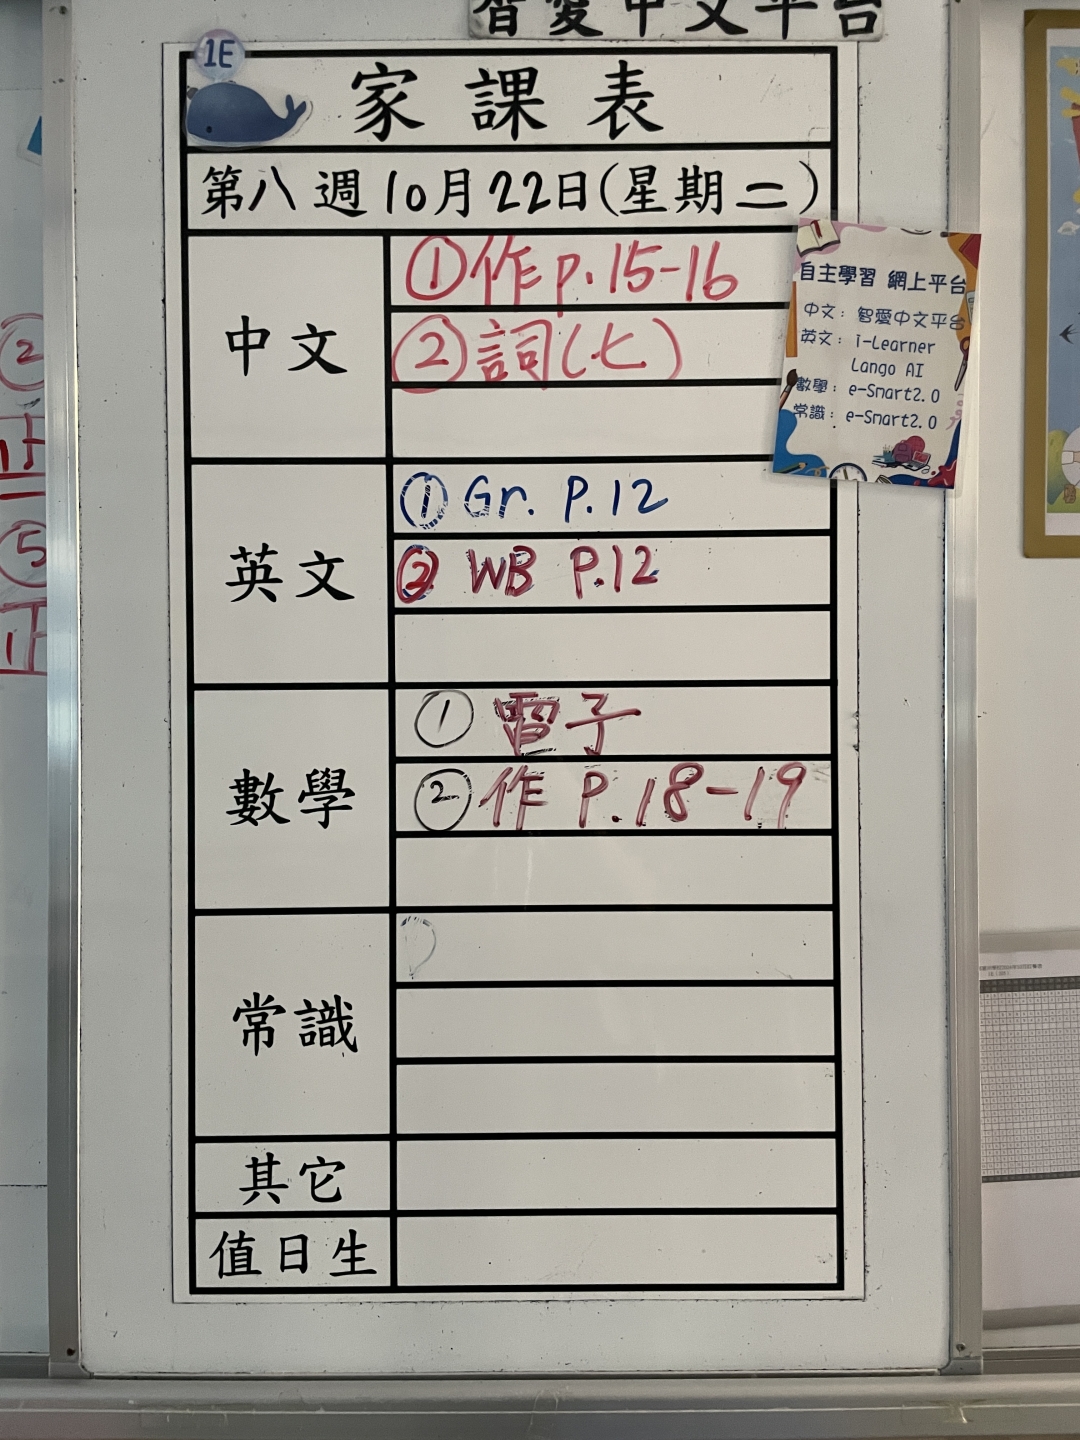 智愛中文平台
1E
家課表
第八週10月22日(星期二)
中文
①作p.15-16
②詞(七)
自主學習 網上平台
中文：智愛中文平台
英文：i-Learner
Lango AI
數學：e-Smart2.0
常識：e-Smart2.0
英文
① Gr. P.12
② WB P.12
數學
① 電子
② 作 P.18-19
常識
其它
值日生
②
正
⑤
正